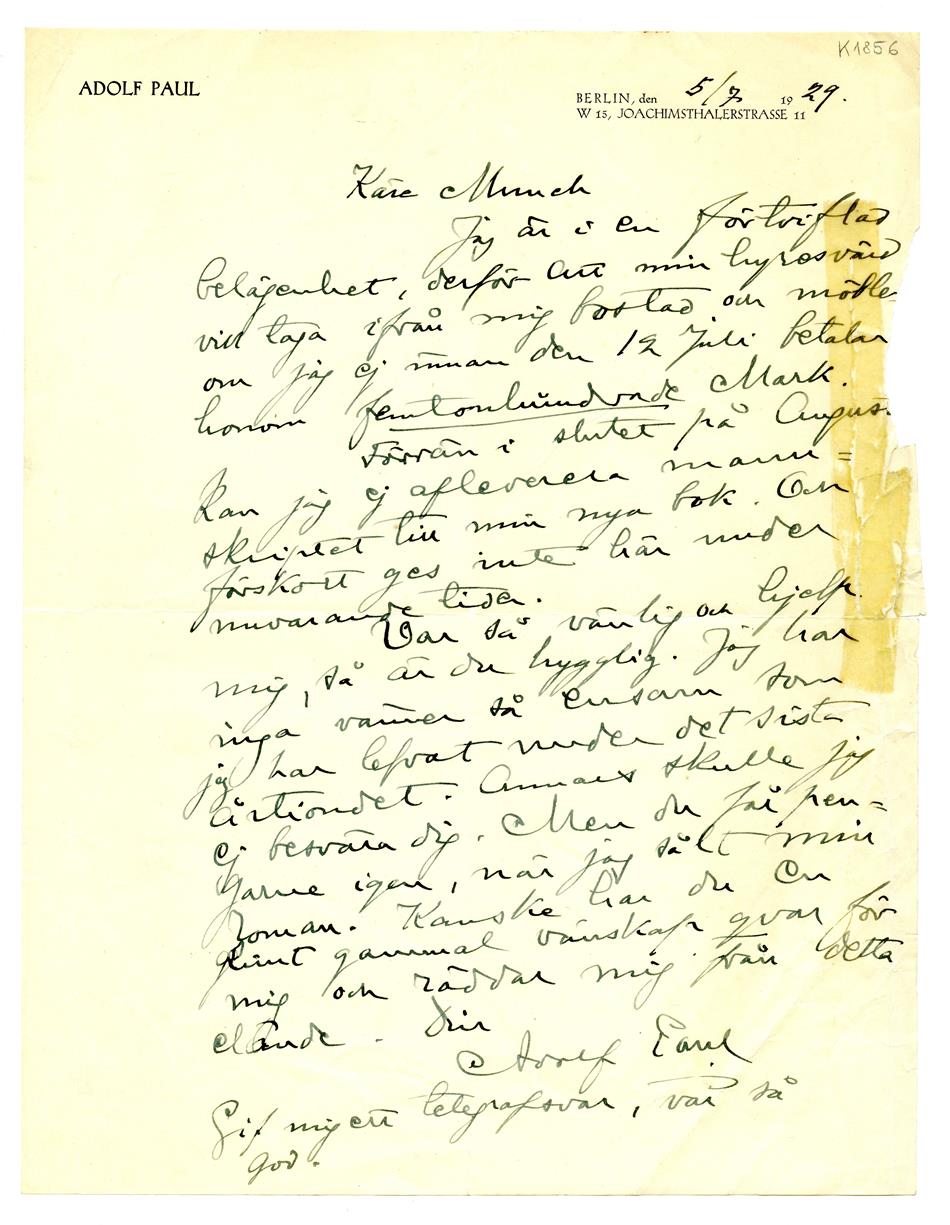 K1856
ADOLF PAUL
BERLIN, den 5/7 1929.
W 15, JOACHIMSTHALERSTRASSE 11
Käre Munch
Jag är i en förtviflad
belägenhet, derför att min hyresvärd
vill taga ifrån mig bostad och möble
om jag ej innan den 12 Juli betalar
honom femtonhundrade Mark.
Förrän i slutet på Augus
kan jag ej afleverera manu=
skriptet till min nya bok. Och
förskott ges inte här under
nuvarande tider.
Var så vänlig och hjelp
mig, så är du hygglig. Jag har
inga vänner så ensam som
jag har lefvat under det sista
årtiondet. Annars skulle jag
ej besvära dig. Men du får pen=
garne igen, när jag sålt min
roman. Kanske har du en
glimt gammal vänskap qvar för
mig och räddar mig från detta
elände. Din
Adolf Paul
Gif mig ett telegrafsvar, var så
god.